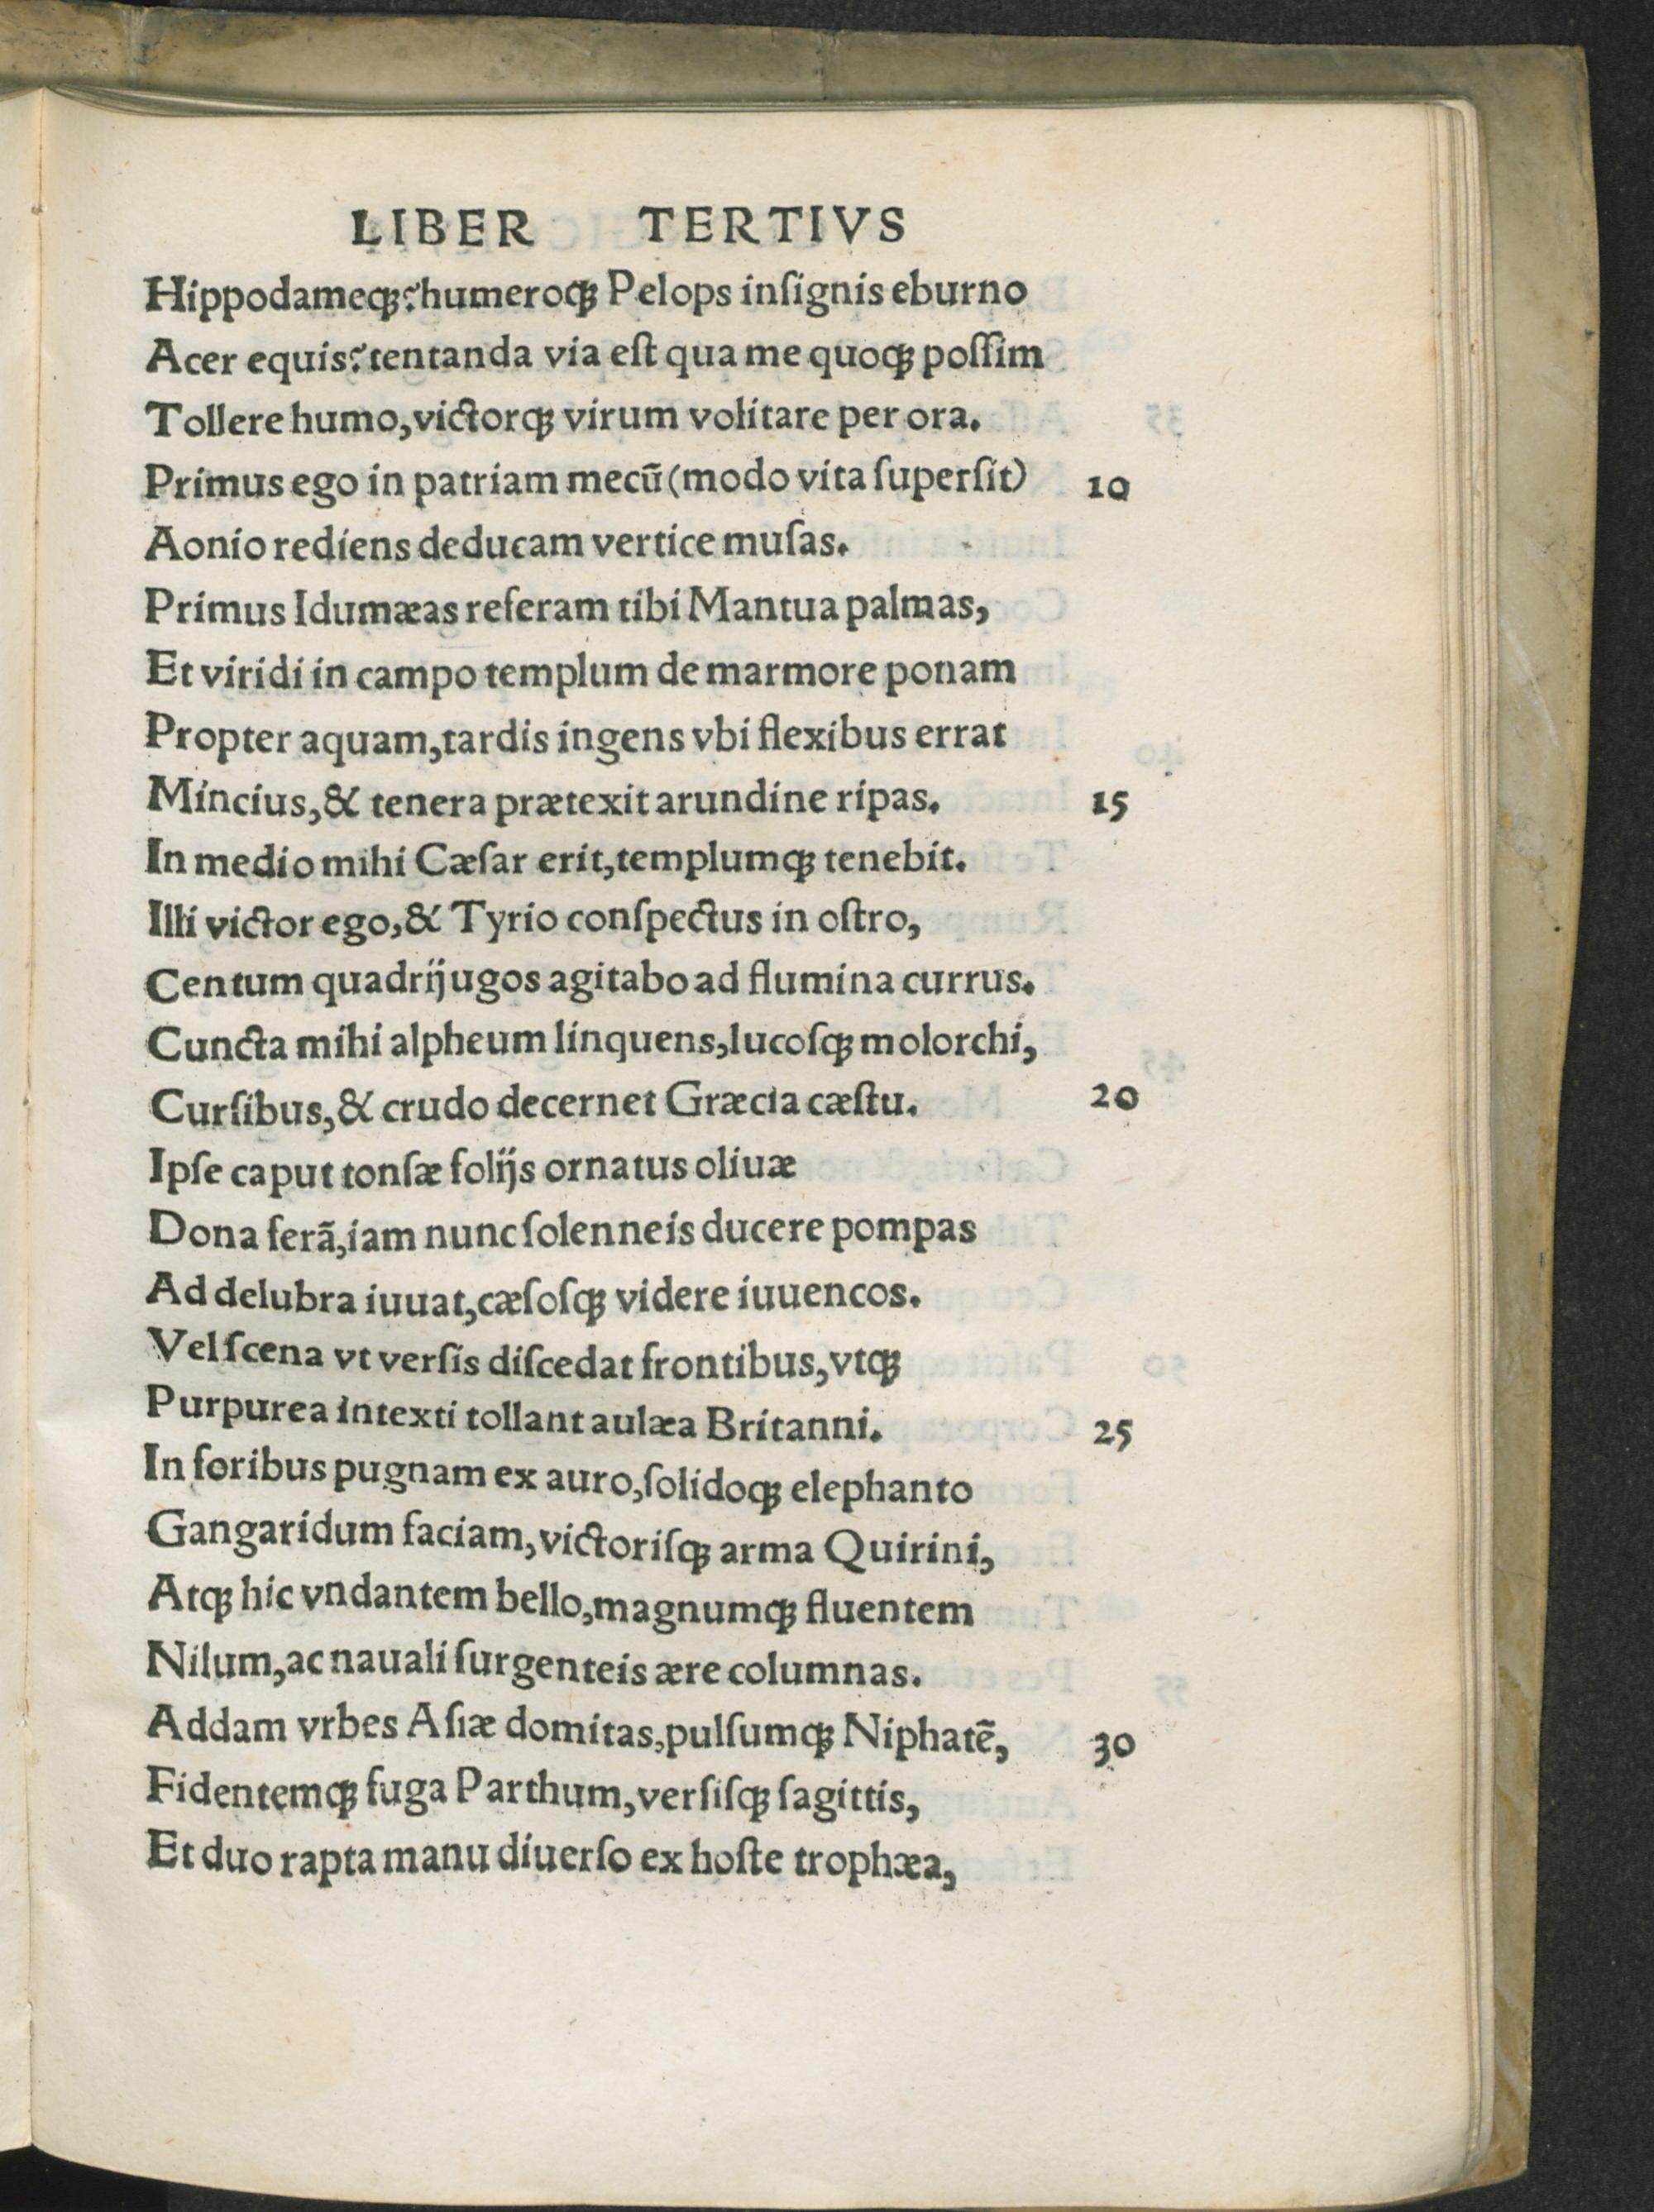 LIBER TERTIVS
Hippodameq́ꝫ? humeroq́ꝫ Pelops inſignis eburno
Acer equis? tentanda via eſt qua me quoq́ꝫ poſſim
Tollere humo, victorq́ꝫ virum volitare per ora.
Primus ego in patriam mecū (modo vita ſuperſit) 10
Aonio rediens deducam vertice muſas.
Primus Idumæas referam tibi Mantua palmas,
Et viridi in campo templum de marmore ponam
Propter aquam, tardis ingens vbi flexibus errat
Mincius, & tenera prætexit arundine ripas. 15
In medio mihi Cæſar erit, templumq́ꝫ tenebit.
Illi victor ego, & Tyrio conſpectus in oſtro,
Centum quadrijugos agitabo ad flumina currus.
Cuncta mihi alpheum linquens, lucoſq́ꝫ molorchi,
Curſibus, & crudo decernet Græcia cæſtu. 20
Ipſe caput tonſæ folijs ornatus oliuæ
Dona ferã, iam nunc ſolenneis ducere pompas
Ad delubra iuuat, cæſoſq́ꝫ videre iuuencos.
Vel ſcena vt verſis diſcedat frontibus, vtq́ꝫ
Purpurea intexti tollant aulæa Britanni. 25
In foribus pugnam ex auro, ſolidoq́ꝫ elephanto
Gangaridum faciam, victoriſq́ꝫ arma Quirini,
Atq́ꝫ hic vndantem bello, magnumq́ꝫ fluentem
Nilum, ac nauali ſurgenteis ære columnas.
Addam vrbes Aſiæ domitas, pulſumq́ꝫ Niphatē, 30
Fidentemq́ꝫ fuga Parthum, verſiſq́ꝫ ſagittis,
Et duo rapta manu diuerſo ex hoſte trophæa,